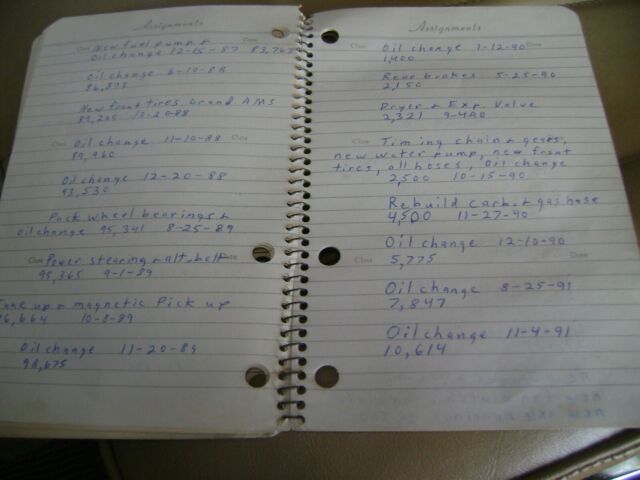 Assignments
New fuel pump +
Oil change 12-15-87 83,767
Oil change 6-10-88
86,893
New front tires Grand AMS
89,200 10-20-88
Oil change 11-10-88
89,960
Oil change 12-20-88
93,530
Pack wheel bearings +
oil change 95,341 8-25-89
Power steering + alt. belt
95,365 9-1-89
Tune up + magnetic Pick up
96,664 10-8-89
Oil change 11-20-89
98,675
Assignments
Class Oil change 1-12-90 Date
1,400
Rear brakes 5-25-90
2,150
Dryer + Exp. Valve
2,321
Class Timing chain + gears, Date
new water pump, new front
tires, all hoses, Oil change
2,500 10-15-90
Rebuild Carb. + gas hose
4,500 11-27-90
Oil change 12-10-90
Class 5,775 Date
Oil change 8-25-91
7,847
Oil change 11-4-91
10,614